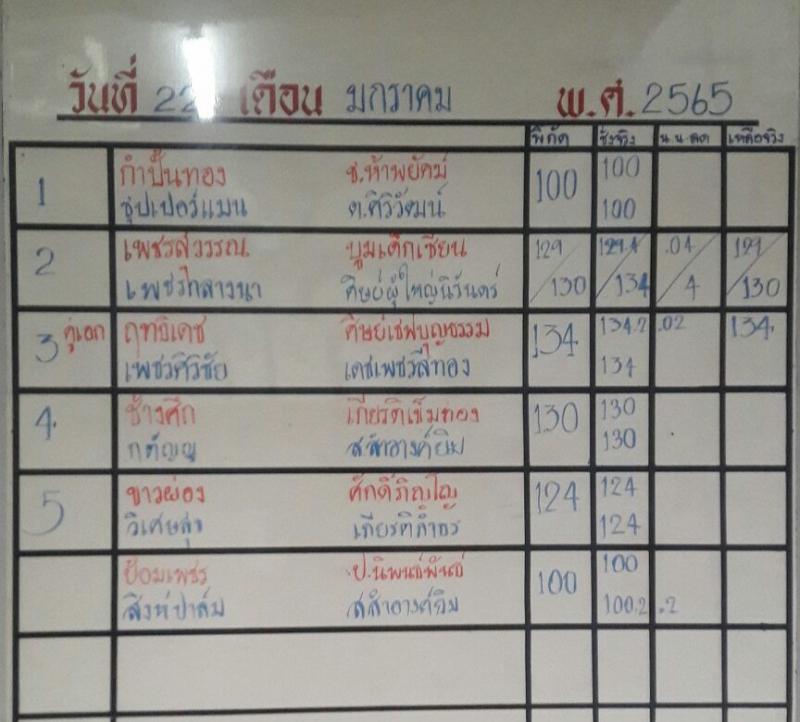 วันที่ 22 เดือน มกราคม พ.ศ. 2565
พิกัด ชั่งจริง น.น.ลด เหลือจริง
1 กำปั้นทอง ช.ห้าพยัคฆ์ 100 100
ซุปเปอร์แมน ต.ศิวิวัฒน์ 100
2 เพชรสุวรรณ บูมเด็กเซียน 129 129.4 .04 129
เพชรไกลางนา ศิษย์ผู้ใหญ่นิรันดร์ 130 134 4 130
3 คู่เอก ฤทธิเดช ศิษย์เชฟบุญธรรม 134 134.2 .02 134.
เพชรศิวิชัย เดชเพชรสีทอง 134
4. ช้างศึก เกียรติเข็มทอง 130 130
กตัญญู ส.สำอางค์ยิม 130
5 ขาวผ่อง ศักดิ์ภิญโญ 124 124
วิเศษสุข เกียรติกำธร 124
ย้อมเพชร ป.นิพนธ์พันธ์ 100 100
สิงห์ปาล์ม ส.สำอางค์ยิม 100.2 .2